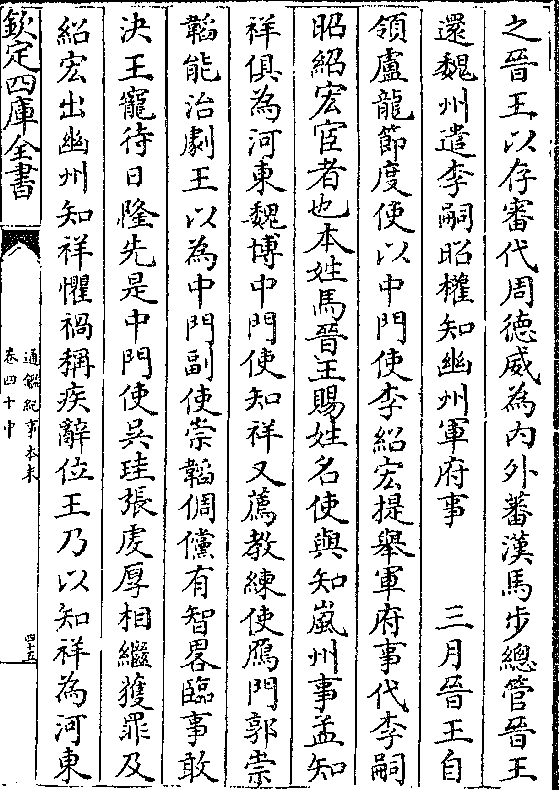 之晉王以存審代周徳威為内外蕃漢馬步總管晉王
還魏州遣李嗣昭權知幽州軍府事　三月晉王自
領盧龍節度使以中門使李紹宏提舉軍府事代李嗣
昭紹宏宦者也本姓馬晉王賜姓名使與知嵐州事孟知
祥俱為河東魏博中門使知祥又薦教練使鴈門郭崇
韜能治劇王以為中門副使崇韜倜儻有智畧臨事敢
決王寵待日隆先是中門使吳珪張虔厚相繼獲罪及
紹宏出幽州知祥懼禍稱疾辭位王乃以知祥為河東
欽定四庫全書
通鑑紀事本末
卷四十中
四十五